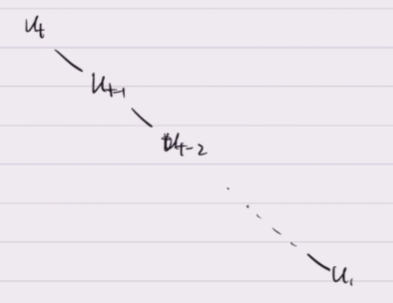 u_t
u_{t-1}
u_{t-2}
u_1